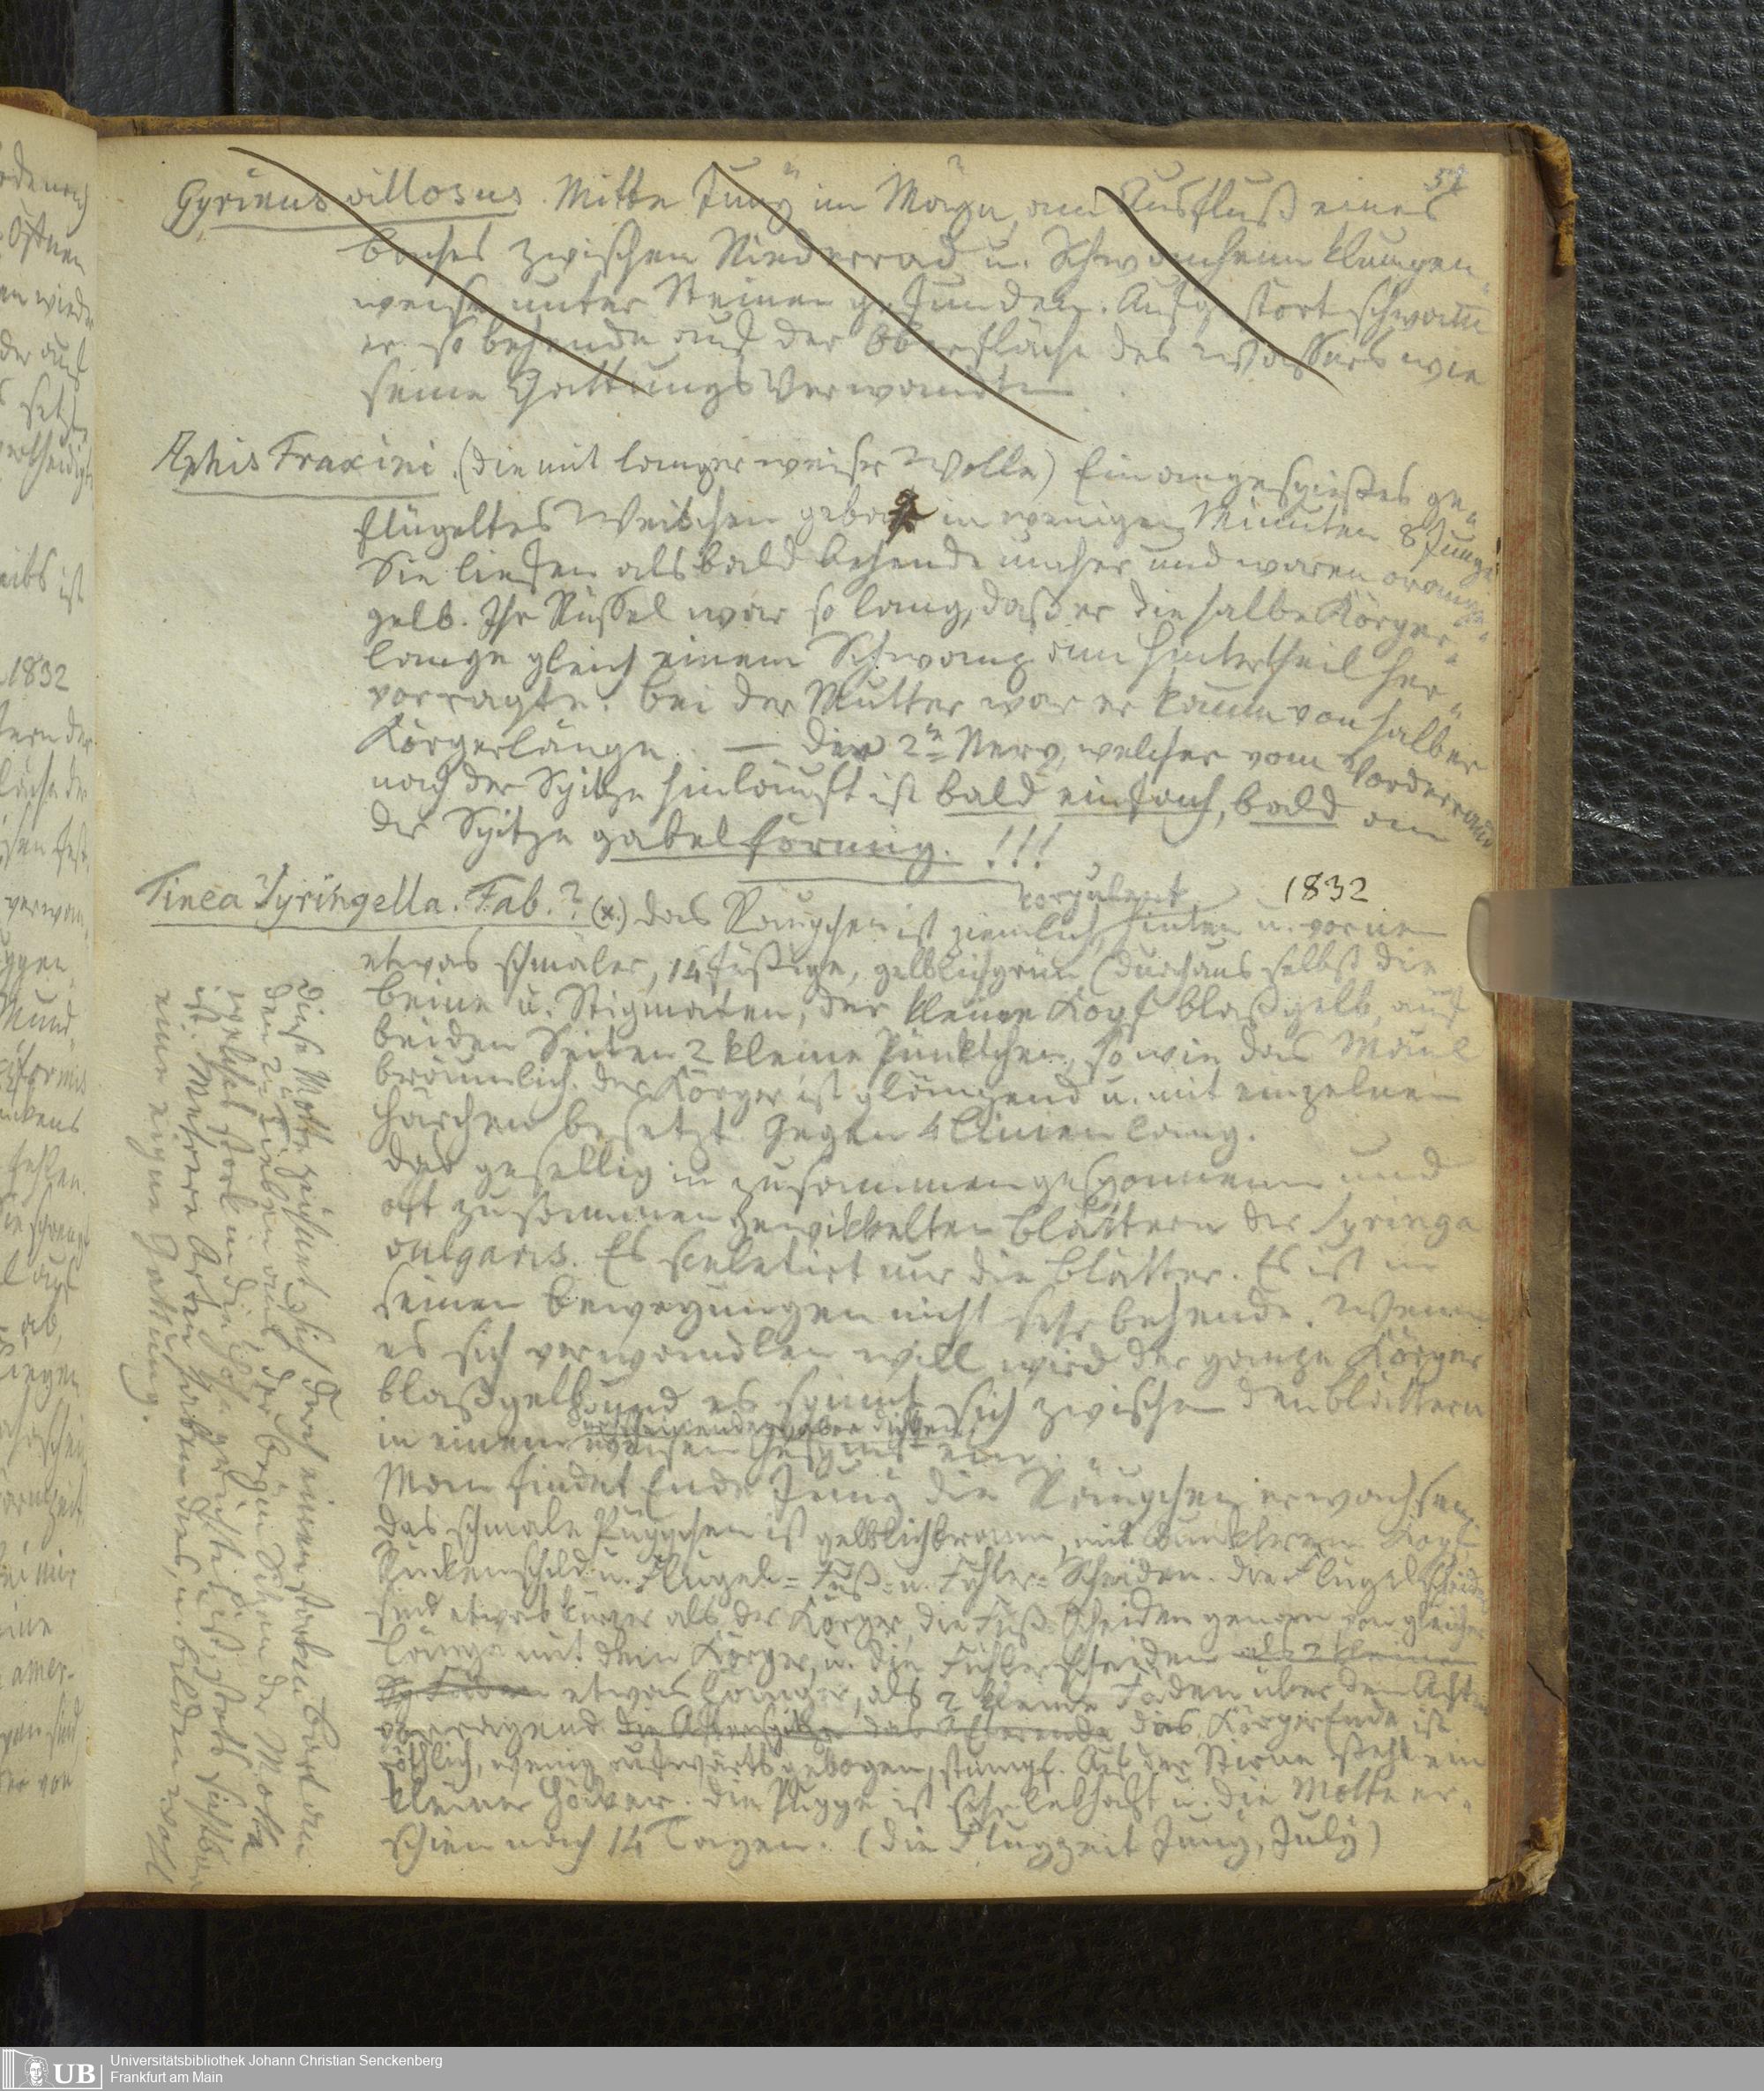 51
Gyrinus villosus. Mitte Juny im Mayn, am Ausfluß eines
Baches zwischen Niederrad u. Schwanheim klumpen-
weise unter Steinen gefunden. Aufgestört schwam̅
er so behende auf der Oberfläche des Wassers wie
seine Gattungs Verwandten
Aphis Fraxini. (die mit langer weiser Wolle) Ein angespießtes ge-
flügeltes Weibchen gebar in wenigen Minuten 8 Junge!
Sie liefen alsbald behende umher und waren orange-
gelb. Ihr Rüssel war so lang, daß er die halbe Körper-
länge gleich einem Schwanz am Hintertheil her-
vorragte. Bei der Mutter war er kaum von halber
Körperlänge. — der 2te Nerv, welcher vom Vorderrand
nach der Spitze hinläuft ist bald einfach, bald an
der Spitze gabelförmig. !!!
Tinea Syringella. Fab.? (x.) das Räupchen ist ziemlich korpulent, hinten u. vornen 1832
etwas schmäler, 14füßige, gelblichgrün (durchaus selbst die
Beine u. Stigmaten, der kleine Kopf blaßgelb, auf
beiden Seiten 2 kleine Pünktchen, so wie das Maul
bräunlich. der Körper ist glänzend u. mit einzelnen
Härchen besetzt. Gegen 4 Linien lang.
das gesellig in zusammengesponnenen und
oft zusammen gewikkelten Blättern der Syringa
vulgaris. Es skeletirt nur die Blätter. Es ist in
seinen Bewegungen nicht sehr behende. Wenn
es sich verwandlen will wird der ganze Körper
blaßgelb und es spinnt sich zwischen den Blättern
in einem durchscheinenden, aber dichten weisen Gespinst ein.
Man findet Ende Juny die Räupchen erwachsen,
das schmale Püppchen ist gelblichbraun, mit dunklerem Kopf,
Rückenschild u. Flügel= Fuß= u. Fühler= Scheiden. die Flügelscheiden
sind etwas kürzer als der Körper, die Fuß Scheiden genau von gleicher
Länge mit dem Körper, u. die Fühlerscheiden als 2 kleine
etwas länger, als 2 kleine Faden über den After
vorragend. die Afterspitze das Afterende das Körper Ende ist
röthlich, wenig aufwärts gebogen, stumpf. Auf der Stirne steht ein
kleiner Höcker. die Puppe ist sehr lebhaft u. die Motte er-
schien nach 14 Tagen. (die Flugzeit Juny, July)
diese Motte zeichnet sich durch einen starken Bart an
den aus, der beym Sitzen der Motte
welches stark in die Höhe gerichtet ist, stets sichtbar
ist. Mehrere Arten haben dies, u. bilden wohl
eine eigne Gattung.
Universitätsbibliothek Johann Christian Senckenberg
Frankfurt am Main
UB